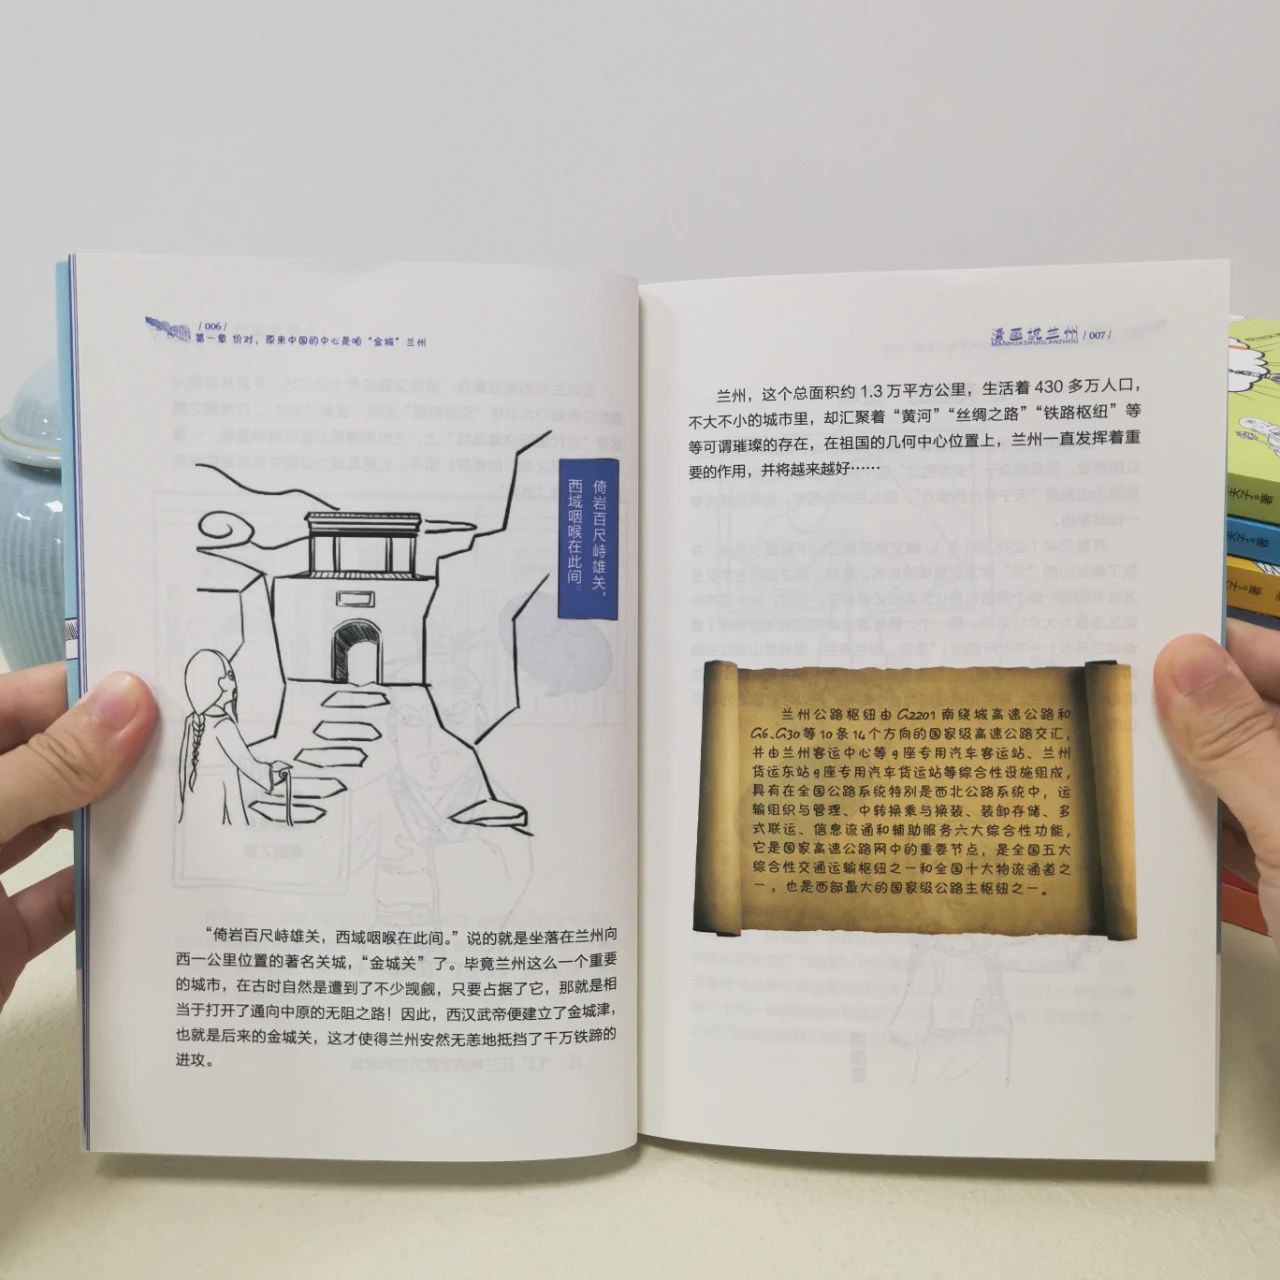 / 006 /
第一章 价对，原来中国的中心是咱“金城”兰州
倚岩百尺峙雄关，
西域咽喉在此间。
“倚岩百尺峙雄关，西域咽喉在此间。”说的就是坐落在兰州向
西一公里位置的著名关城，“金城关”了。毕竟兰州这么一个重要
的城市，在古时自然是遭到了不少觊觎，只要占据了它，那就是相
当于打开了通向中原的无阻之路！因此，西汉武帝便建立了金城津，
也就是后来的金城关，这才使得兰州安然无恙地抵挡了千万铁蹄的
进攻。
漫画说兰州 / 007 /
MANHUASHUOLANZHOU
兰州，这个总面积约 1.3 万平方公里，生活着 430 多万人口，
不大不小的城市里，却汇聚着“黄河”“丝绸之路”“铁路枢纽”等
等可谓璀璨的存在，在祖国的几何中心位置上，兰州一直发挥着重
要的作用，并将越来越好……
兰州公路枢纽由 G2201 南绕城高速公路和
G6、G30 等 10 条 14 个方向的国家级高速公路交汇，
并由兰州客运中心等 9 座专用汽车客运站、兰州
货运东站 9 座专用汽车货运站等综合性设施组成，
具有在全国公路系统特别是西北公路系统中，运
输组织与管理、中转换乘与换装、装卸存储、多
式联运、信息流通和辅助服务六大综合性功能，
它是国家高速公路网中的重要节点，是全国五大
综合性交通运输枢纽之一和全国十大物流通道之
一，也是西部最大的国家级公路主枢纽之一。